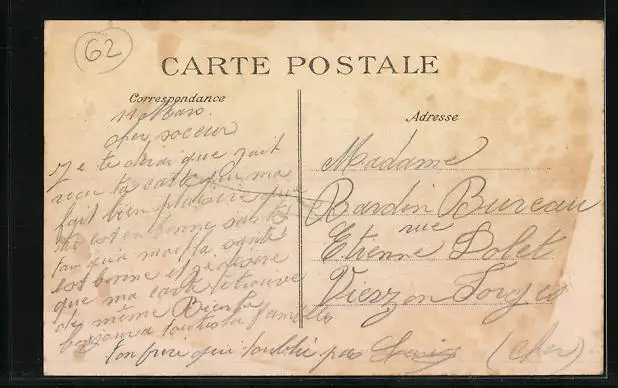 62
CARTE POSTALE
Correspondance
Adresse
11 Mars.
cher soceur
Je te dirai que jait
recu ta carte qui ma
fait bien plaisir que
tu est en bonne santé
tan qua moi la santé
est bonne et je désire
que ma carte te trouve
de même Bien
bonjour a toute ta famille
ton frere qui toublie pas Louis
Madame
Bardin Bureau
rue
Etienne Dolet
Vierzon Forges
(Cher)